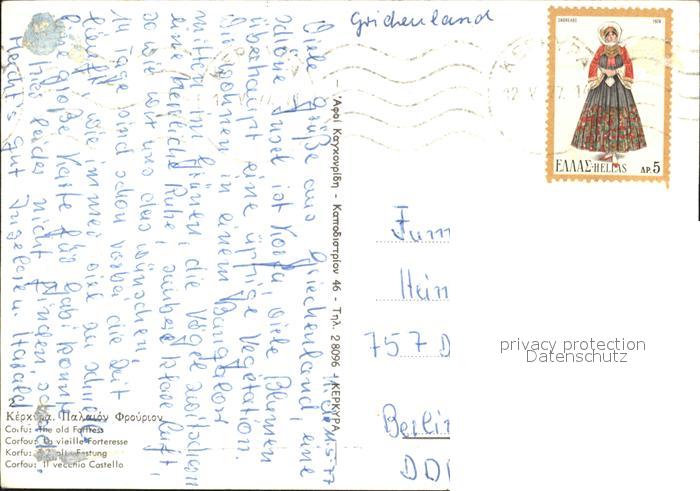 Grichenland
ΣΚΟΠΕΛΟΣ 1974
ΕΛΛΑΣ-HELLAS ΔΡ.5
V
Viele Grüße aus Griechenland, eine
schöne Insel ist Korfu, viele Blumen
überhaupt eine üppige Vegetation.
Wir wohnen in einem Bungalow
mitten im Grünen, die Vögel zwitschern
eine herrliche Ruhe, saubere klare Luft,
so wie wir uns das wünschen.
14 Tage sind schon vorbei die Zeit
läuft wie immer viel zu schnell.
Eine große Karte für Gabi konnte
ich hier leider nicht finden, schade.
Macht's gut Ingeborg u. Harald
5-77
Ἀφοί Καγκουρίδη - Καποδιστρίου 46 - Τηλ. 28096 - ΚΕΡΚΥΡΑ
Fam
Hein
757 D
Berlin
DDR
privacy protection
Datenschutz
Κέρκυρα. Παλαιόν Φρούριον
Corfu: The old Fortress
Corfou: La vieille Forteresse
Korfu: Die alte Festung
Corfou: Il vecchio Castello